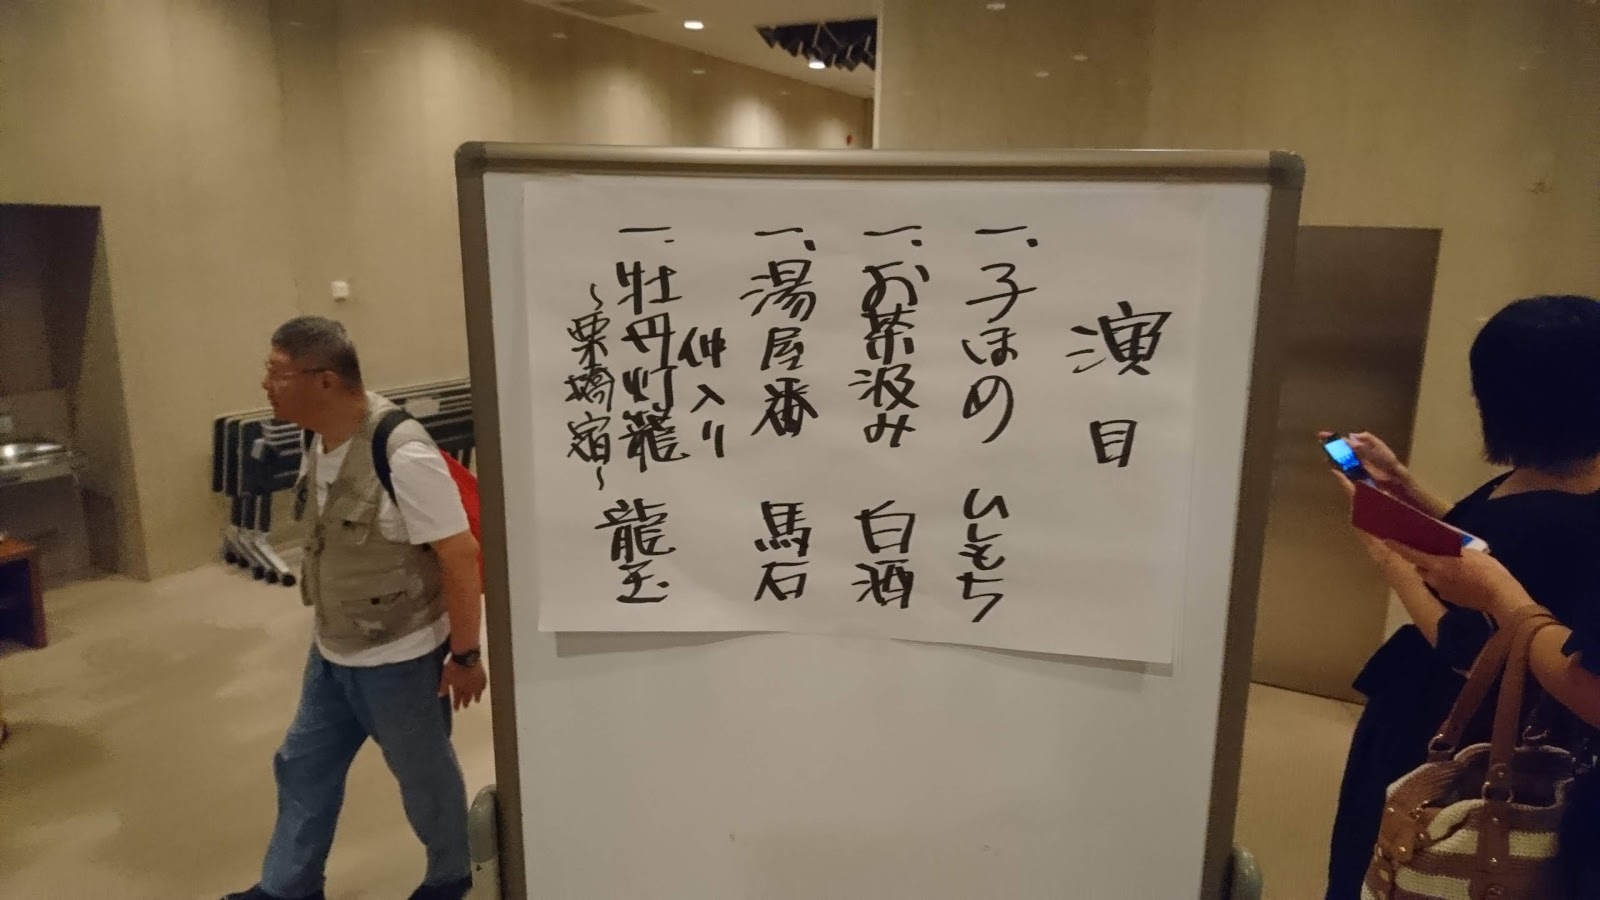 演目
一、子ほめ ひしもち
一、お茶汲み 白酒
一、湯屋番 馬石
仲入り
一、牡丹灯籠 龍玉
～栗橋宿～